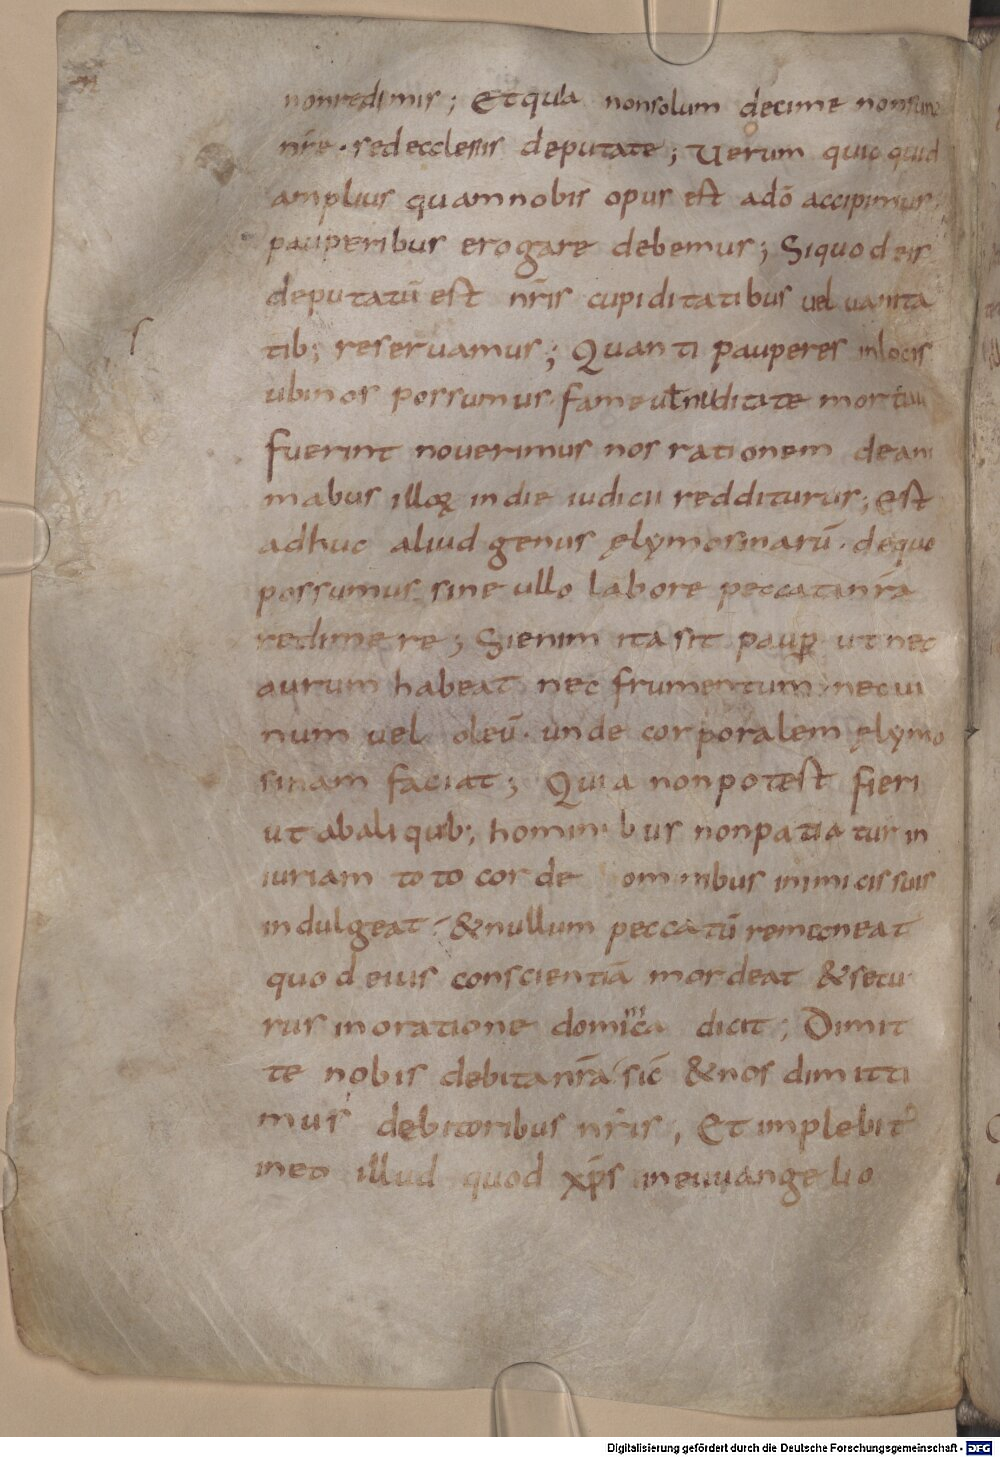 nonredimis; Et quia nonsolum decime nonsunt
nr̄e· sedecclesiis deputate; Uerum quicquid
amplius quamnobis opus est adō accipimus,
pauperibus erogare debemus; Siquodeis
deputatū est nr̄is cupiditatibus vel uanita
tib; reseruamus; Quanti pauperes inlocis
ubinos possumus. fame ut nuditate mortui
fuerint nouerimus nos rationem deani
mabus illoꝝ indie iudicii reddituros; est
adhuc aliud genus ęlymosinarū· deque
possumus sine ullo labore peccatanr̄a
redimere; Sienim itasit paup̄ ut nec
aurum habeat nec frumentum necui
num vel oleū· unde corporalem ęlymo
sinam faciat; Quia nonpotest fieri
ut abaliquib; hominibus nonpatiatur in
iuriam toto corde omnibus inimicissuis
indulgeat· & nullum peccatū remaneat
quod eius conscientiā mordeat & secu
rus inoratione domīca dicit; Dimit
te nobis debitanr̄a sic̄ & nos dimitti
mus debitoribus nr̄is, Et implebit̄
ineo illud quod xp̄s ineuuangelio
Digitalisierung gefördert durch die Deutsche Forschungsgemeinschaft - DFG